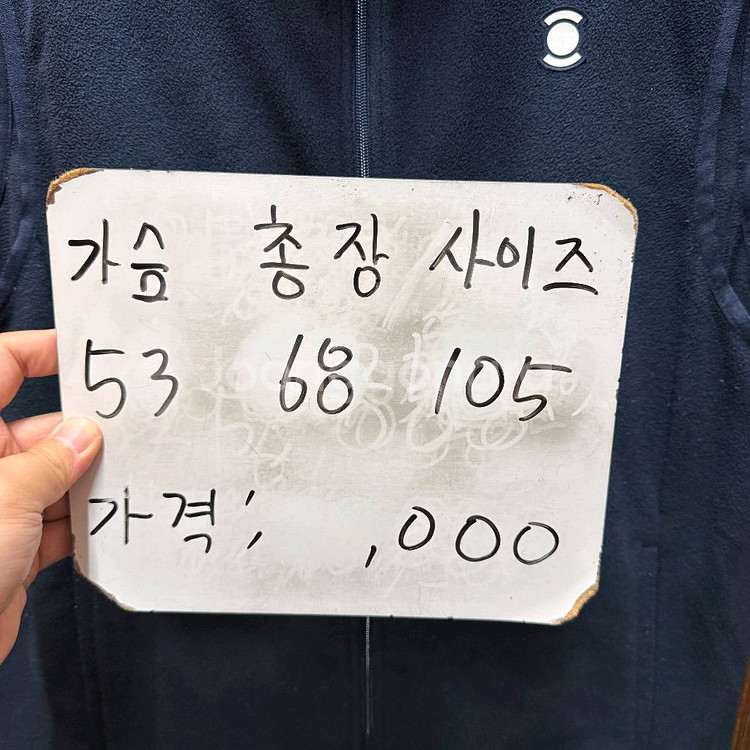 가슴 총장 사이즈
53 68 105
가격; ,000